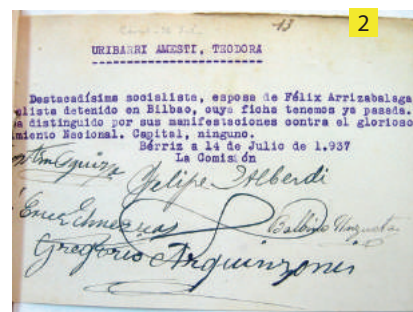 13
2
URIBARRI AMESTI, TEODORA
Destacadísima socialista, esposa de Félix Arrizabalaga
alista detenido en Bilbao, cuya ficha tenemos ya pasada.
a distinguido por sus manifestaciones contra el glorioso
miento Nacional. Capital, ninguno.
Bérriz a 14 de Julio de 1.937
La Comisión
Felipe Alberdi
Balbino
Gregorio Arguinzonis